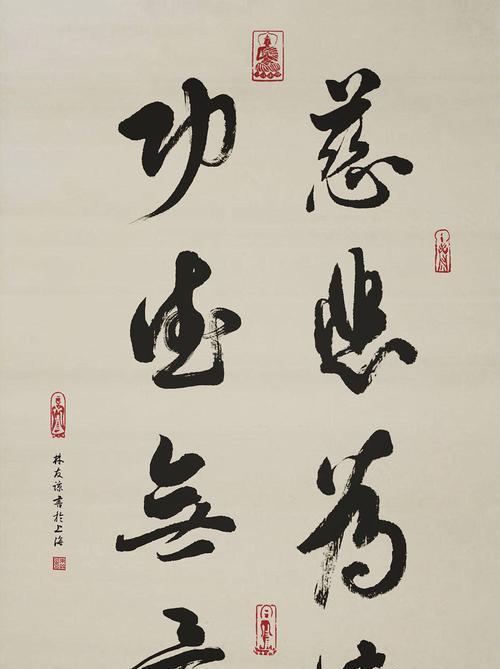 慈悲為
功德無
林友諒書於上海